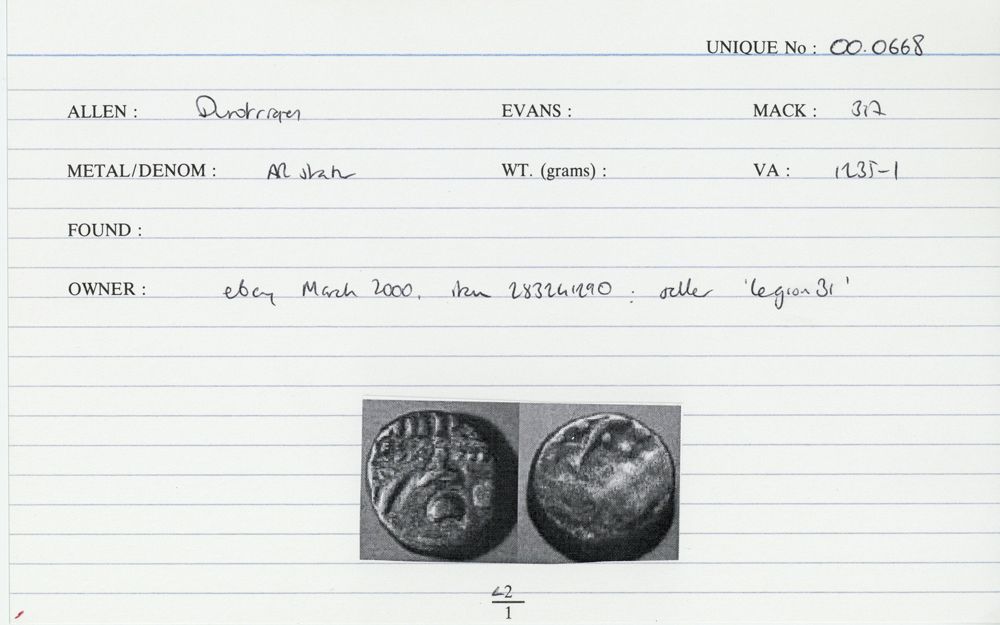 UNIQUE No : 00.0668
ALLEN : Durotriges EVANS : MACK : 317
METAL/DENOM : AR stater WT. (grams) : VA : 1235-1
FOUND :
OWNER : ebay March 2000, item 283241290 : seller 'legion31'
2
1